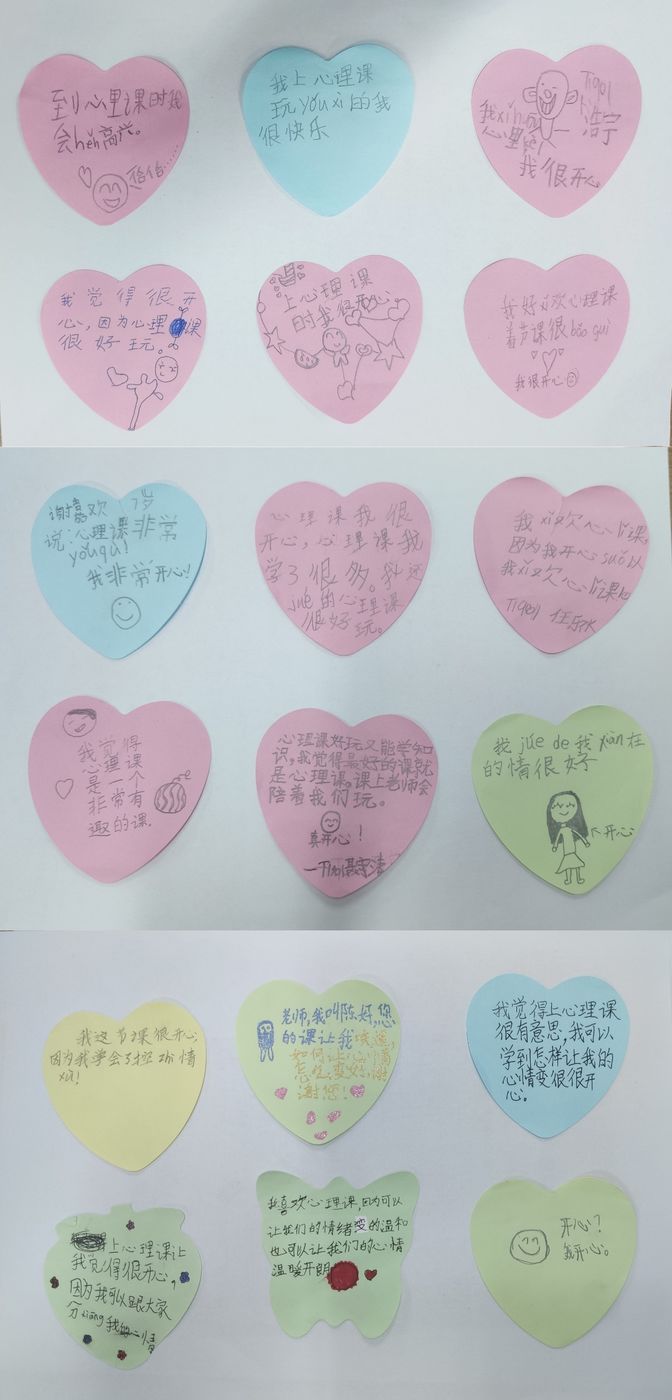 到心里课时我
会hěn高兴。
哈哈……
我上心理课
玩yóu xì的我
很快乐
我xǐ huan
心里kè
我很开心。
我觉得很开
心,因为心理课
很好玩。
上心理课
时我很开心。
我好喜欢心理课
着节课很bǎo guì
我很开心
7岁
说:心理课非常
yǒu qù!
我非常开心!
心理课我很
开心,心理课我
学了很多。我还
jué的心理课
很好玩。
我xǐ欢心lǐ课,
因为我开心suǒ以
我xǐ欢心lǐ课
我觉得
心理课
是一个
非常有
趣的课.
心理课好玩又能学知
识,我觉得最好的课就
是心理课,课上老师会
陪着我们玩。
真开心!
我júe de我xiàn在
的情很好
开心
我这节课很开心,
因为我学会了控制情
xù!
老师,我叫陈好,您
的课让我知道,
如何让心情
怎么变好,谢
谢您!
我觉得上心理课
很有意思,我可以
学到怎样让我的
心情变很很开
心。
上心理课让
我觉得很开心,
因为我可以跟大家
分xiǎng我的心情
我喜欢心理课,因为可以
让我们的情绪变的温和
也可以让我们的心情
温暖开朗
开心?
我开心。